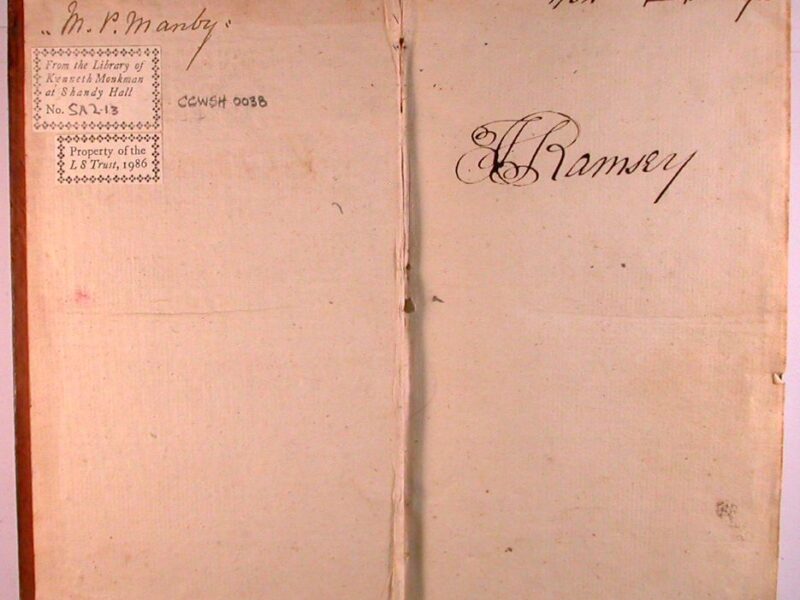 „ M. P. Manby.
From the Library of
Kenneth Monkman
at Shandy Hall
No. SA2.13
CCWSH 0038
Property of the
L S Trust, 1986
Ramsey